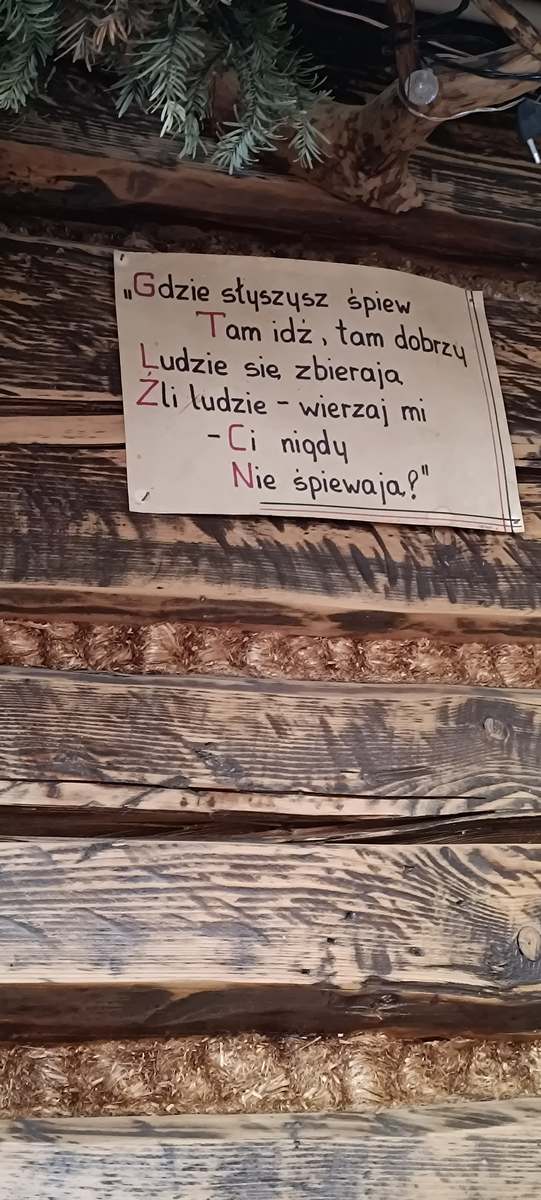 „Gdzie słyszysz śpiew
Tam idź, tam dobrzy
Ludzie się zbierają
Źli ludzie - wierzaj mi
- Ci nigdy
Nie śpiewają?"